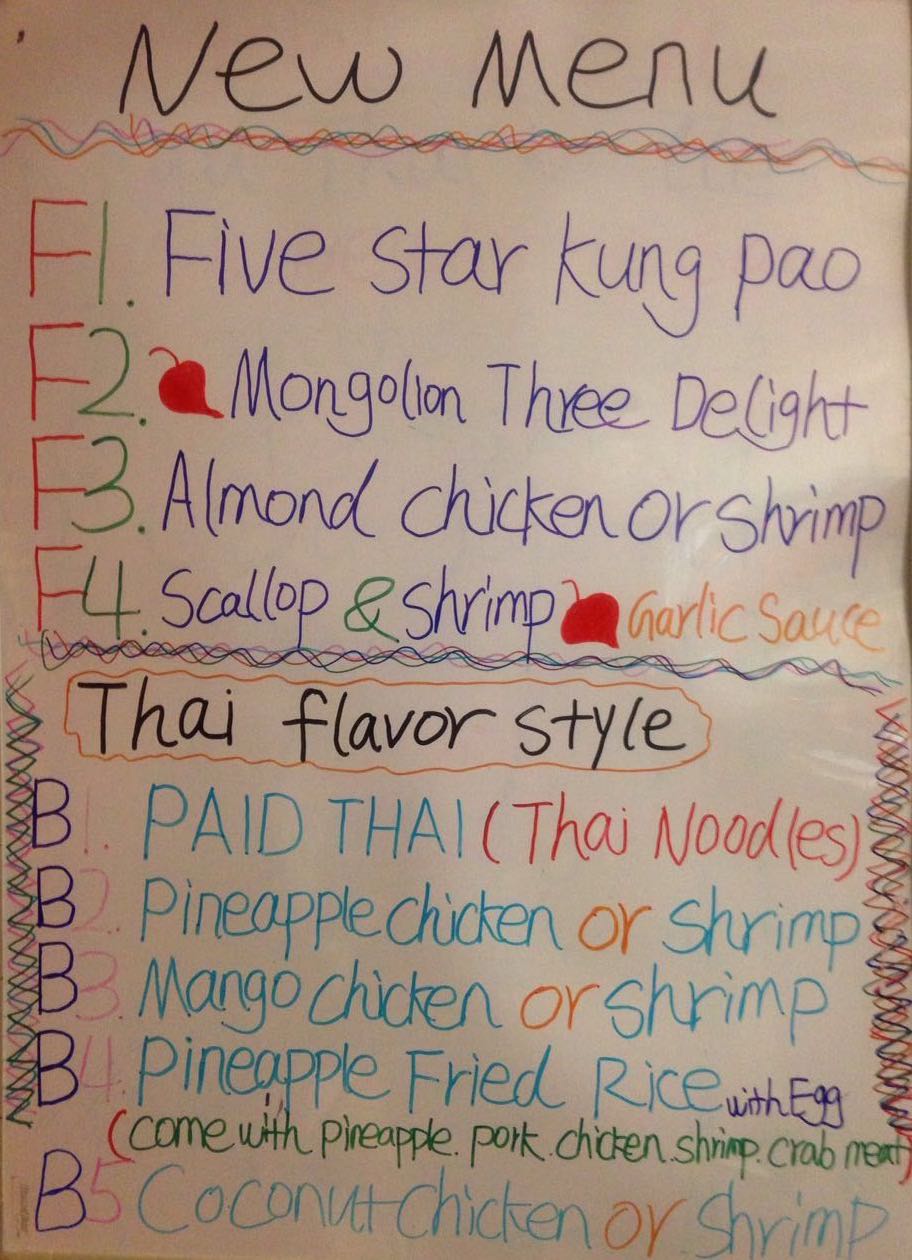 New Menu
F1. Five Star kung pao
F2. Mongolion Three Delight
F3. Almond chicken or Shrimp
F4. Scallop & Shrimp Garlic Sauce
Thai flavor style
B1. PAID THAI (Thai Noodles)
B2. Pineapple chicken or Shrimp
B3. Mango chicken or Shrimp
B4. Pineapple Fried Rice with Egg
(come with pineapple. pork. chicken. shrimp. crab meat)
B5 Coconut Chicken or Shrimp